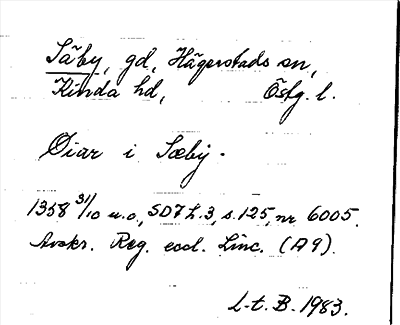 Säby, gd, Hägerstads sn,
Kinda hd, Östg. l.
Øiar i Sæby.
1358 31/10 u.o., SD7 h.3, s.125, nr 6005.
Avskr. Reg. eccl. Linc. (A9).
L-t. B. 1983.